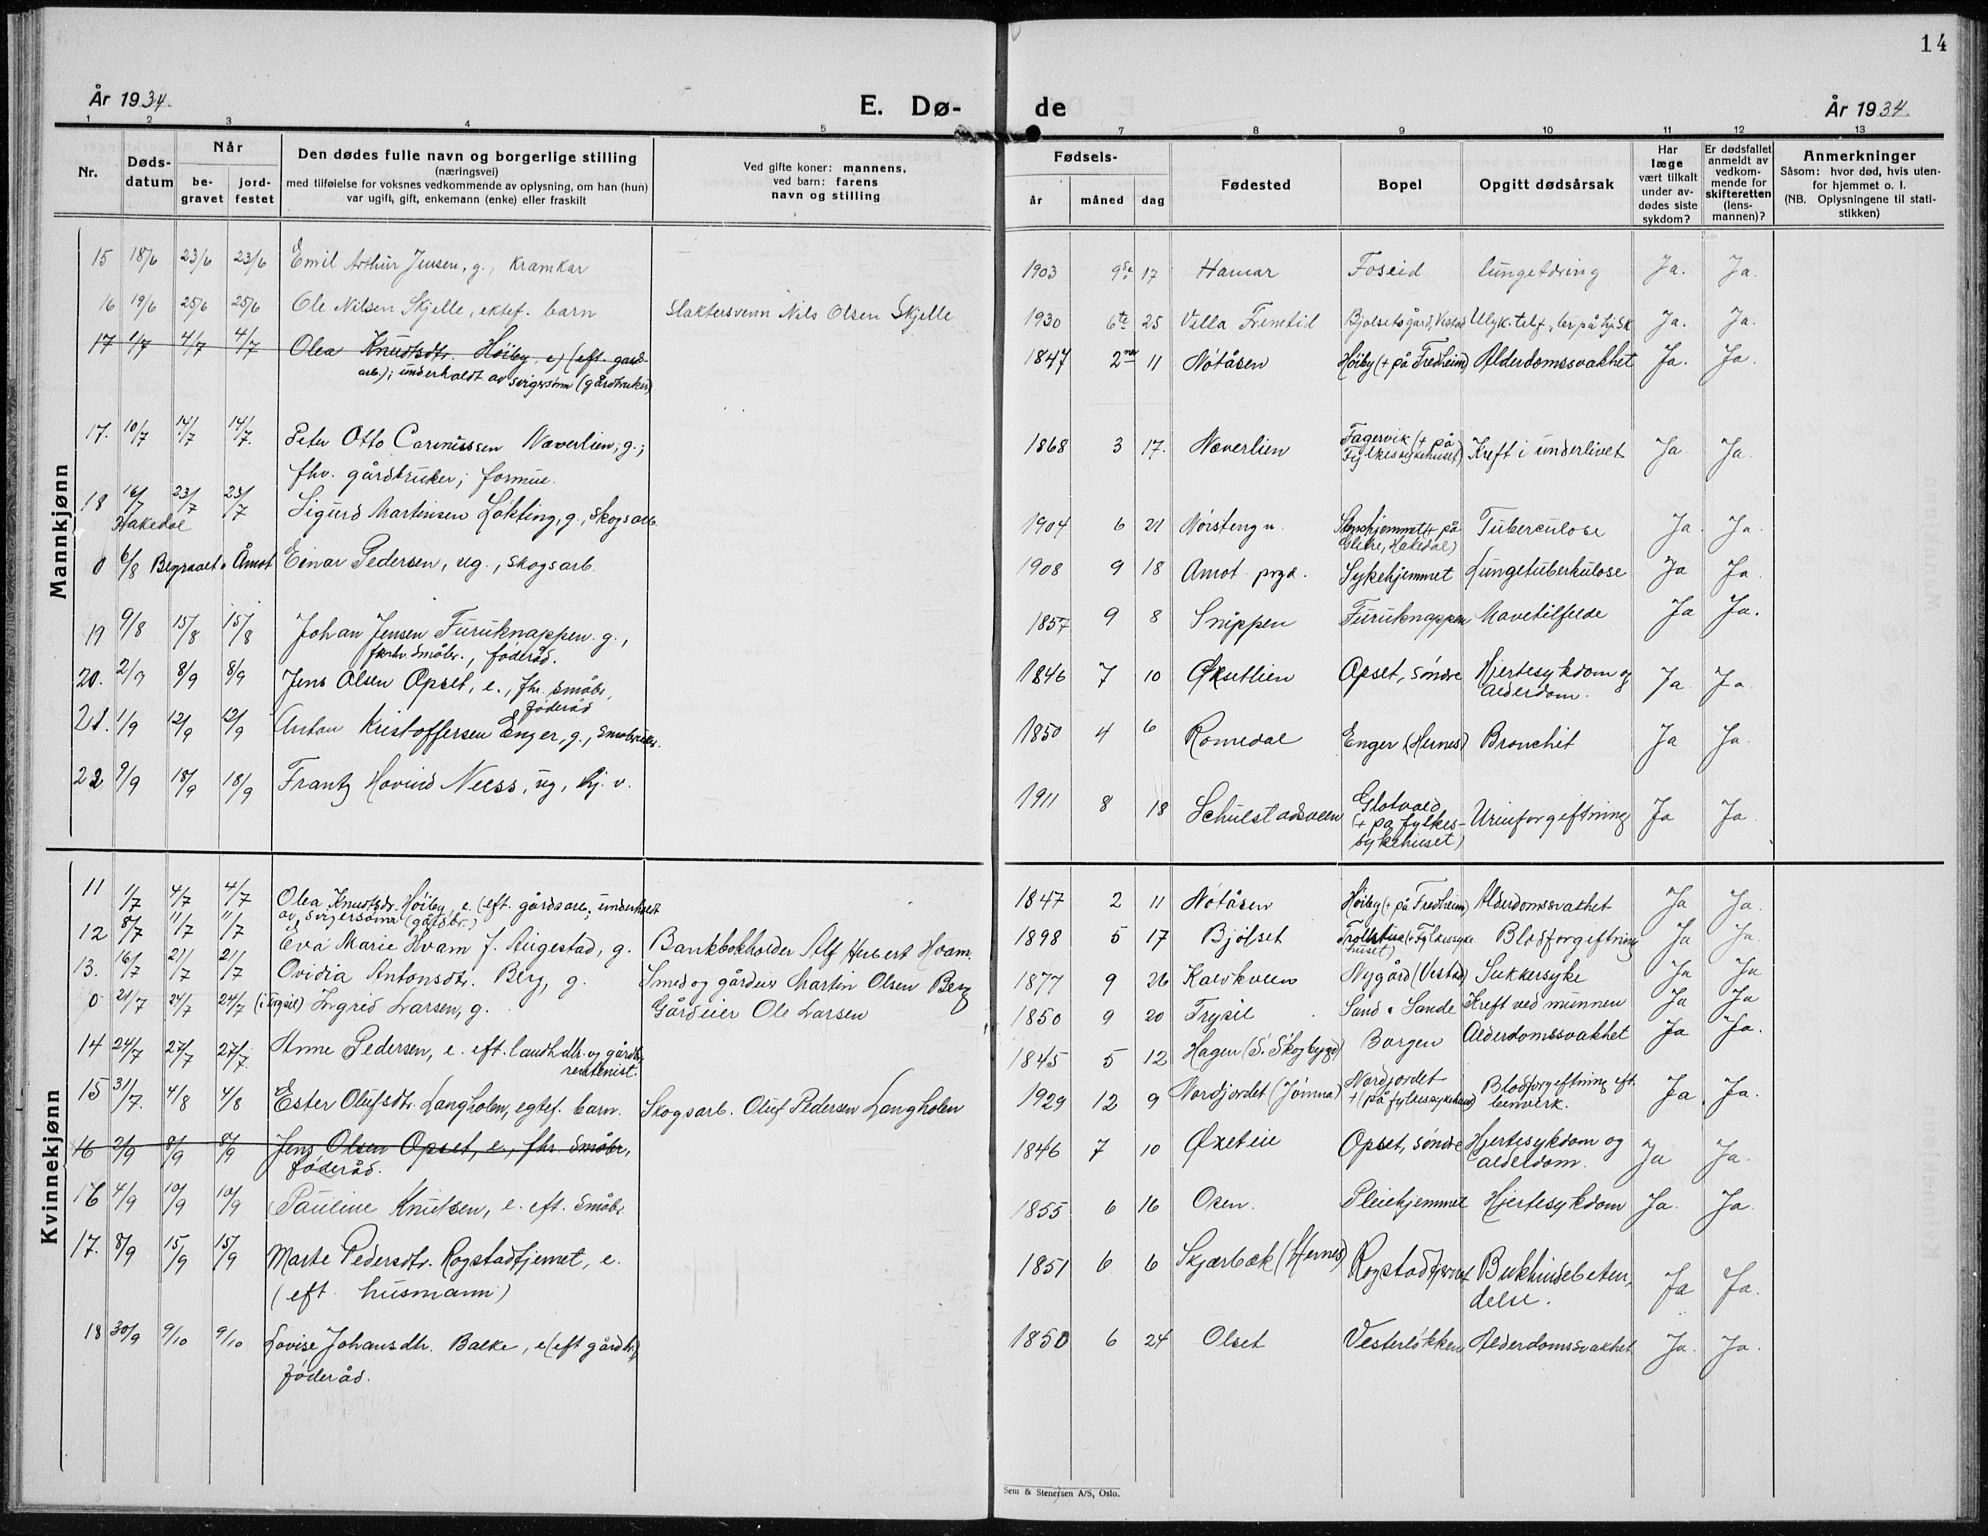 14
År 1934.
E. Dø-
de
År 1934.
1 2 3 4 5 7 8 9 10 11 12 13
Nr.
Døds-
datum
Når
be-
gravet
jord-
festet
Den dødes fulle navn og borgerlige stilling
(næringsvei)
med tilføielse for voksnes vedkommende av oplysning, om han (hun)
var ugift, gift, enkemann (enke) eller fraskilt
Ved gifte koner: mannens,
ved barn: farens
navn og stilling
Fødsels-
år måned dag
Fødested
Bopel
Opgitt dødsårsak
Har
læge
vært tilkalt
under av-
dødes siste
sykdom?
Er dødsfallet
anmeldt av
vedkom-
mende for
skifteretten
(lens-
mannen)?
Anmerkninger
Såsom: hvor død, hvis uten-
for hjemmet o. l.
(NB. Oplysningene til stati-
stikken)
Mannkjønn
15 18/6 23/6 23/6 Emil Arthur Jensen, g., kramkar 1903 9de 17 Hamar Foseid lungetæring Ja. Ja.
16 19/6 25/6 25/6 Ole Nilsen Skjelle, ektef. barn Slaktersvenn Nils Olsen Skjelle 1930 6te 25 Villa Fremtid Bjølsetsgård, Vestad Ulyk.telf., Ja. Ja.
17 1/7 4/7 4/7 Olea Knudtsdtr. Høiby, e, (eft. gård-
arb.); underholdt av svigersønn (gårdbruker) 1847 2nen 11 Nøtåsen Høiby (+ på Fredheim) Alderdomssvakhet Ja. Ja.
17. 10/7 14/7 14/7. Peter Otto Næverlien, g.;
fhv. gårdbruker; formue. 1868 3 17. Næverlien Fagervik (+ på
Fylkessykehuset) Kreft i underlivet Ja Ja.
18 16/7 23/7 23/7 Sigurd Martinsen Løkting, g., skogsarb.
Hakedal 1904 6 21 (+ på
Glitre, Hakedal) Tuberculose Ja. Ja.
0 6/8 Begravet i Åmot Einar Pedersen, ug., skogsarb. 1908 9 18 Åmot prgd. Sykehjemmet Lungetuberkulose Ja Ja.
19 9/8 15/8 15/8 Johan Jensen Furuknappen g.,
forhv. småbr., føderåd. 1857 9 8 Snippen Furuknappen Mavetilfelde Ja Ja.
20. 2/9 8/9 8/9 Jens Olsen Opset, e., fhv. småbr,
føderåd 1846 7 10 Øksetlien Opset, søndre Hjertesykdom og
alderdom. Ja. Ja.
21. 1/9 12/9 12/9 Anton Kristoffersen Enger, g., småbruker. 1850 4 6 Romedal Enger (Hernes) Bronchit Ja Ja.
22 9/9 18/9 18/9 Frantz Hovind Neess, ug, hj. v. 1911 8 18 Schulstadsveen Glotvold
(+ på fylkes-
sykehuset) Urinforgiftning Ja Ja.
Kvinnekjønn
11 1/7 4/7 4/7 Olea Knudtsdr. Høiby, e. (eft. gårdsarb.; underholdt
av svigersønn (gårdbr.) 1847 2 11 Nøtåsen Høiby (+ på Fredheim) Alderdomssvakhet Ja Ja.
12 8/7 11/7 11/7 Eva Marie Hvam f. Augestad, g. Bankbokholder Alf Hubert Hvam. 1898 5 17 Bjølset (+ Fylkessyke
huset) Blodforgiftning Ja Ja.
13. 16/7 21/7 21/7 Ovidia Antonsdtr. Berg, g. Smed og gårdeier Martin Olsen Berg 1877 9 26 Kalvkveen Nygård (Vestad) Sukkersyke Ja Ja
0 21/7 24/7 24/7 (i Trysil) Ingrid Larsen, g. Gårdeier Ole Larsen 1850 9 20 Trysil Sand i Sande Kreft ved munnen Ja Ja
14 24/7 27/7 27/7 Anne Pedersen, e. eft. landhdlr. og gårdbr.
rentenist. 1845 5 12 Hagen (S. Skogbygd) Borgen Alderdomssvakhet Ja Ja.
15 31/7. 4/8 4/8 Ester Olufsdtr. Langholen, egtef. barn. Skogsarb. Oluf Pedersen Langholen 1929 12 9 Nordjordet (Jømna) Nordjordet
+ (på fylkessykehuset) Blodforgiftning eft.
benverk. Ja. Ja.
16 2/9 8/9 8/9 Jens Olsen Opset, e., fhv. småbr,
føderåd. 1846 7 10 Øxeteie Opset, søndre Hjertesykdom og
alderdom. Ja Ja.
16 4/9 10/9 10/9 Pauline Knutsen, e. eft. småbr. 1855 6 16 Osen. Pleiehjemmet Hjertesykdom Ja. Ja.
17. 8/9 15/9 15/9 Marte Pedersdtr. Rogstadtjernet, e.
(eft husmann) 1851 6 6 Skjærbæk (Hernes) Rogstadtjernet Bukhindebeten-
delse. Ja Ja.
18 30/9 9/10 9/10 Lovise Johansdtr. Balke, e (eft gårdbr.)
føderåd. 1850 6 24 Olset Vesterløkken Alderdomssvakhet Ja. Ja.
Sem & Stenersen A/S, Oslo.